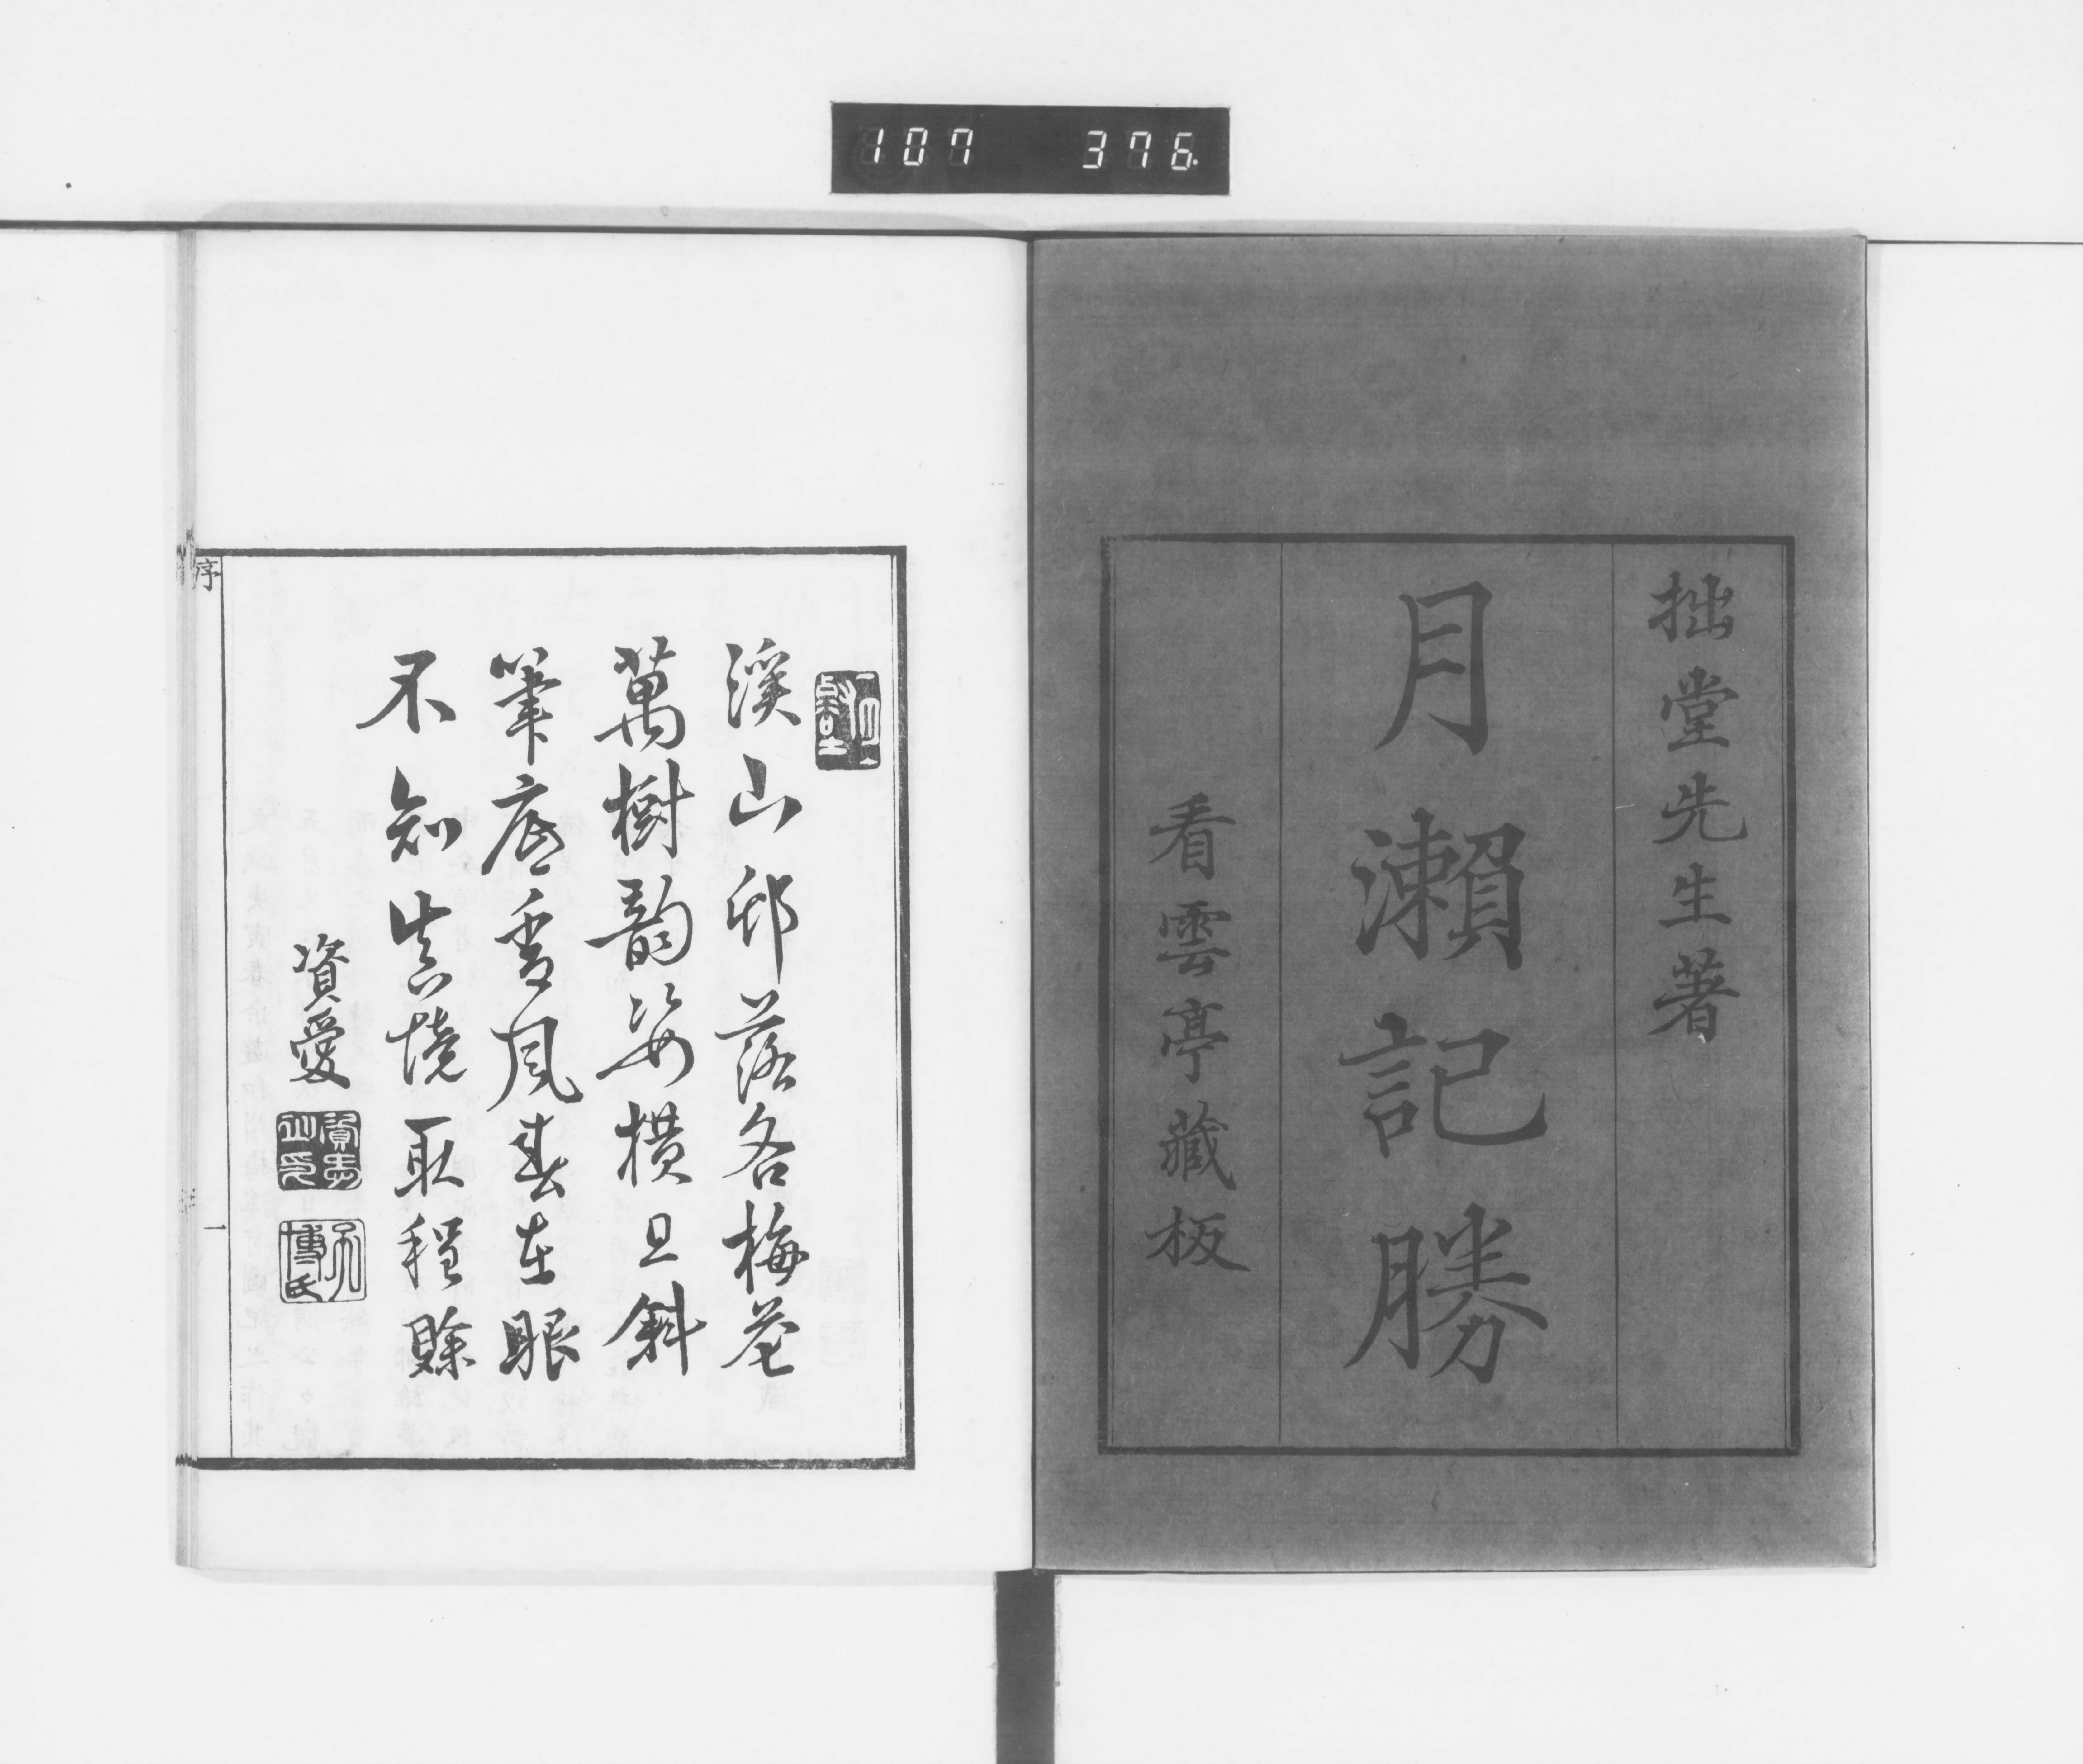 107 376
拙堂先生著
月瀨記勝
看雲亭藏板
溪山邨落各梅花
萬樹韵姿橫且斜
筆底香風春在眼
不知眞境取程賖
資愛
序
一